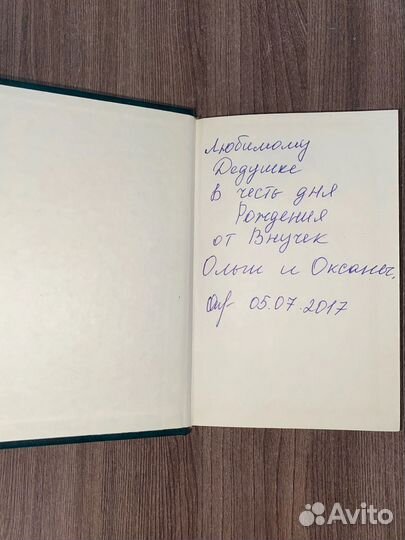 Любимому
Дедушке
в честь дня
Рождения
от Внучек
Ольги и Оксаны,
05.07.2017
Avito